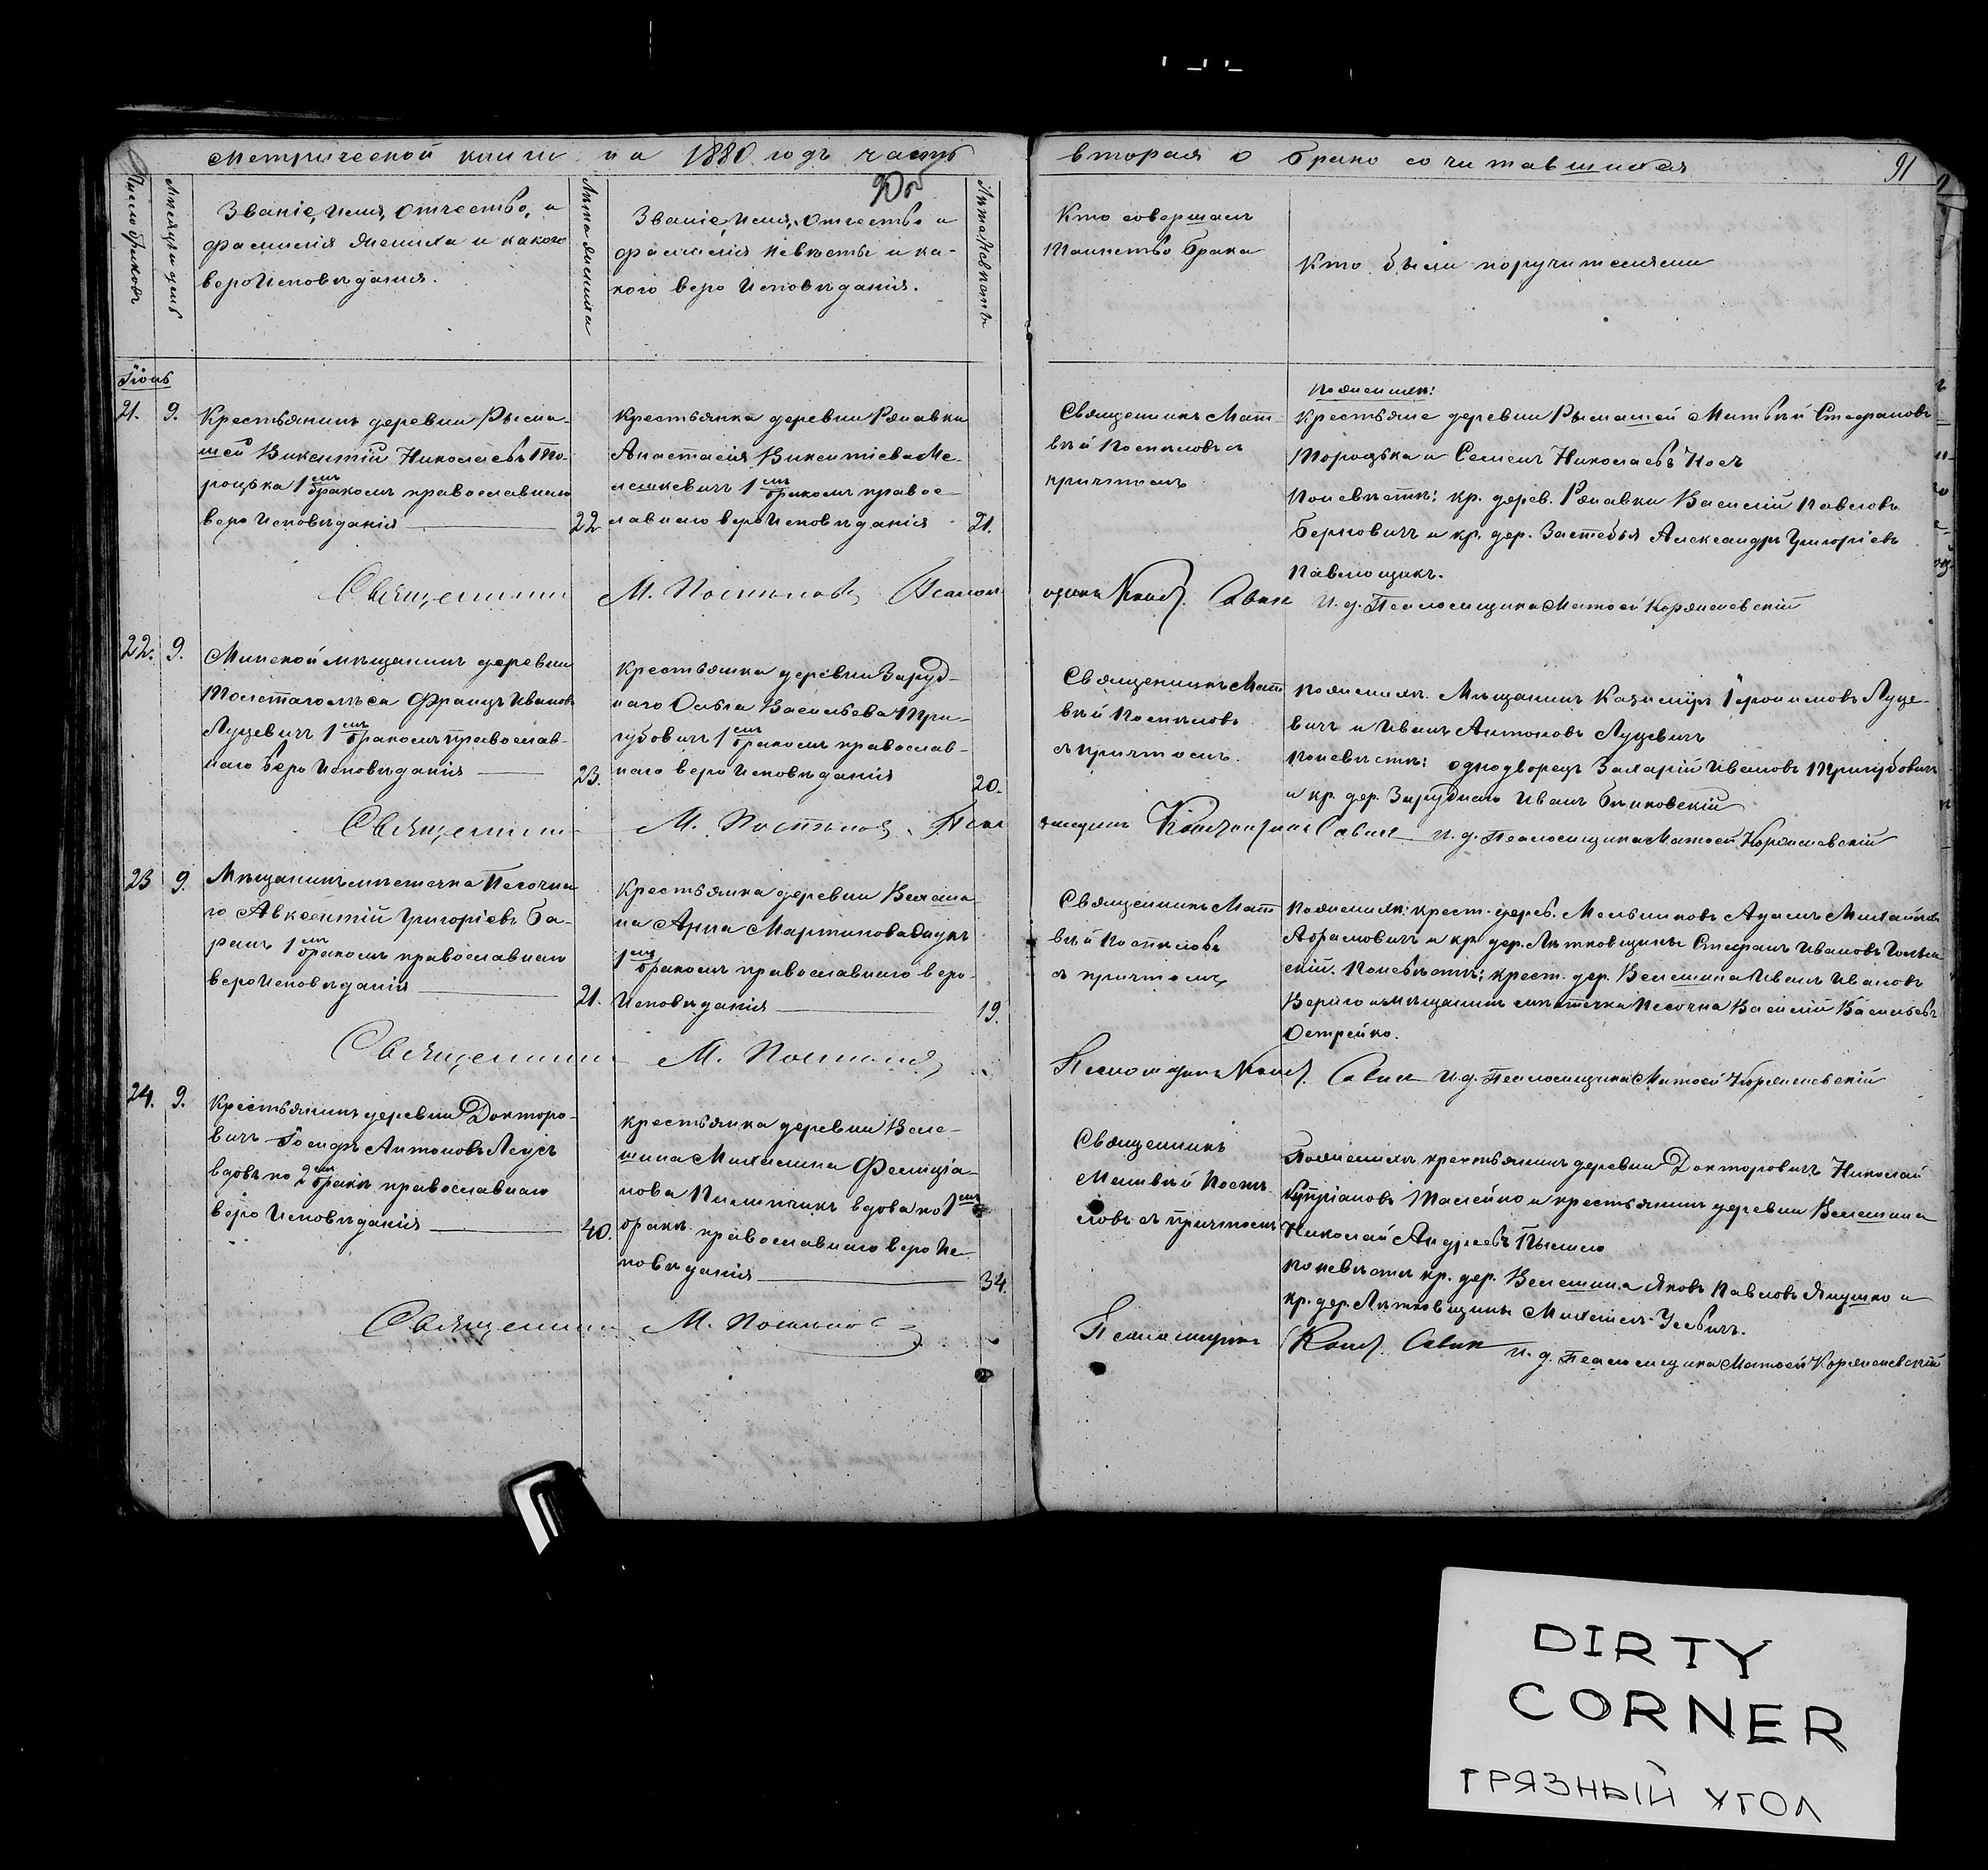 Метрической книги на 1880 годъ часть
вторая о бракосочитавшихся
91
Число браковъ
Мѣсяцъ и день
Званіе, имя, отчество, и
фамилія жениха и какого
вероисповѣданія.
Лѣта жениха
Званіе, имя, отчество и
фамилія невѣсты и ка-
кого вероисповѣданія.
Лѣта невѣсты
Кто совершалъ
таинство брака
Кто были поручителями
Іюнь
21. 9.
Крестьянинъ деревни Рыма-
шей Викентій Николаевъ То-
роцька 1 емъ
бракомъ православнаго
вероисповѣданія
22
Крестьянка деревни
Анастасія Викентіева Ме-
лешкевичъ 1 емъ бракомъ право-
славнаго вероисповѣданія
21.
Священникъ Мат-
вѣй Постыловъ съ
причтомъ
по женихѣ:
крестьяне деревни Рымашей Матвѣй Стефановъ
Тороцька и Семенъ Николаевъ Косъ
По невѣстѣ: кр. дерев. Василій Павловъ
Бернович и кр. дер. Застебья Александръ Григоріевъ
Павлющикъ.
Священникъ М. Постыловъ Псалом
щикъ Конст. Савич И. д. Псаломщика Матѳей Коржелевскій
22. 9.
Минской мѣщанинъ деревни
Толстаголѣса Францъ Ивановъ
Луцевичъ 1 емъ
бракомъ православ-
наго вероисповѣданія
23.
Крестьянка деревни Заруд-
наго Ольга Васильева Три-
губовичъ 1 емъ бракомъ православ-
наго вероисповѣданія
20.
Священникъ Мат
вѣй Постыловъ
съ причтомъ.
по женихѣ. Мѣщанинъ Казиміръ Іеронимовъ Луце-
вичъ и Иванъ Антоновъ Луцевичъ
По невѣстѣ: однодворецъ Захарій Ивановъ Тригубовичъ
и кр. дер. Заруднаго Иванъ Быковскій
Священникъ М. Постыловъ Псал
омщикъ Константинъ Савич И. д. Псаломщика Матѳей Коржелевскій
23 9.
Мѣщанинъ мѣстечка Песочна-
го Авксентій Григоріевъ Ба-
ранъ 1 емъ
бракомъ православнаго
вероисповѣданія
21.
Крестьянка деревни Велеши-
на Анна Мартинова
1 емъ бракомъ православнаго веро-
исповѣданія
19.
Священникъ Мат
вѣй Постыловъ
съ причтомъ
По женихѣ: крест. дерев. Мельниковъ Адамъ Михайловъ
Абрамовичъ и кр. дер. Лѣтковщины Стефанъ Ивановъ
скій. По невѣстѣ: крест. дер. Велешина Иванъ Ивановъ
Вериго и мѣщанинъ мѣстечка Песочна Василій Васильевъ
Острейко.
Священникъ М. Постыловъ
Псаломщикъ Конст. Савич И. д. Псаломщика Матѳей Коржелевскій
24. 9.
Крестьянинъ деревни Докторо-
вичъ Іосифъ Антоновъ Леусъ
вдовъ по 2 емъ
бракѣ православнаго
вероисповѣданія
40.
Крестьянка деревни Веле-
шина Михалина Фелиціа-
нова Пилипчикъ вдова по 1 емъ
бракѣ православнаго вероис-
повѣданія
34.
Священникъ
Матвѣй Посты-
ловъ съ причтомъ
По женихѣ крестьянинъ деревни Докторовичъ Николай
КупріановъТалейко и крестьянинъ деревни Велешина
Николай Андреевъ
По невѣстѣ кр. дер. Велешина Яковъ Павловъ Янушко и
кр. дер. Лѣтковщины Михаилъ Усевичъ.
Священникъ М. Постыловъ
Псаломщикъ Конст. Савич И. д. Псаломщика Матѳей Коржелевскій
DIRTY
CORNER
ГРЯЗНЫЙ УГОЛ